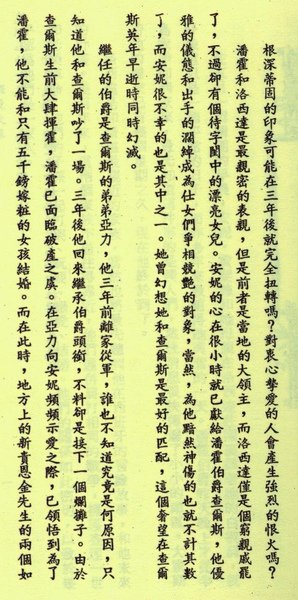 根深蒂固的印象可能在三年後就完全扭轉嗎?對衷心摯愛的人會產生強烈的恨火嗎?
潘霍和洛西達是最親密的表親,但是前者是當地的大領主,而洛西達僅是個窮親戚罷
了,不過卻有個待字閨中的漂亮女兒。安妮的心在很小時就已獻給潘霍伯爵查爾斯,他優
雅的儀態和出手的濶綽成為仕女們爭相競艷的對象,當然,為他黯然神傷的也就不計其數
了,而安妮很不幸的也是其中之一。她曾幻想她和查爾斯是最好的匹配,這個奢望在查爾
斯英年早逝時同時幻滅。
繼任的伯爵是查爾斯的弟弟亞力,他三年前離家從軍,誰也不知道究竟是何原因,只
知道他和查爾斯吵了一場。三年後他回來繼承伯爵頭銜,不料卻是接下一個爛攤子。由於
查爾斯生前大肆揮霍,潘霍已面臨破產之虞。在亞力向安妮頻頻示愛之際,已領悟到為了
潘霍,他不能和只有五千鎊嫁粧的女孩結婚。而在此時,地方上的新貴恩金先生的兩個如